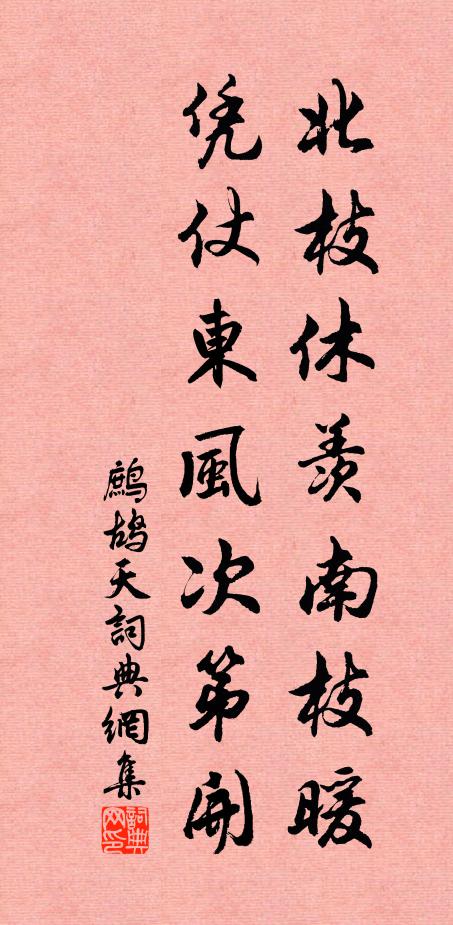 北枝休羨南枝暖
凭仗東風次第開
鷓鴣天詞典網集
詞典网印